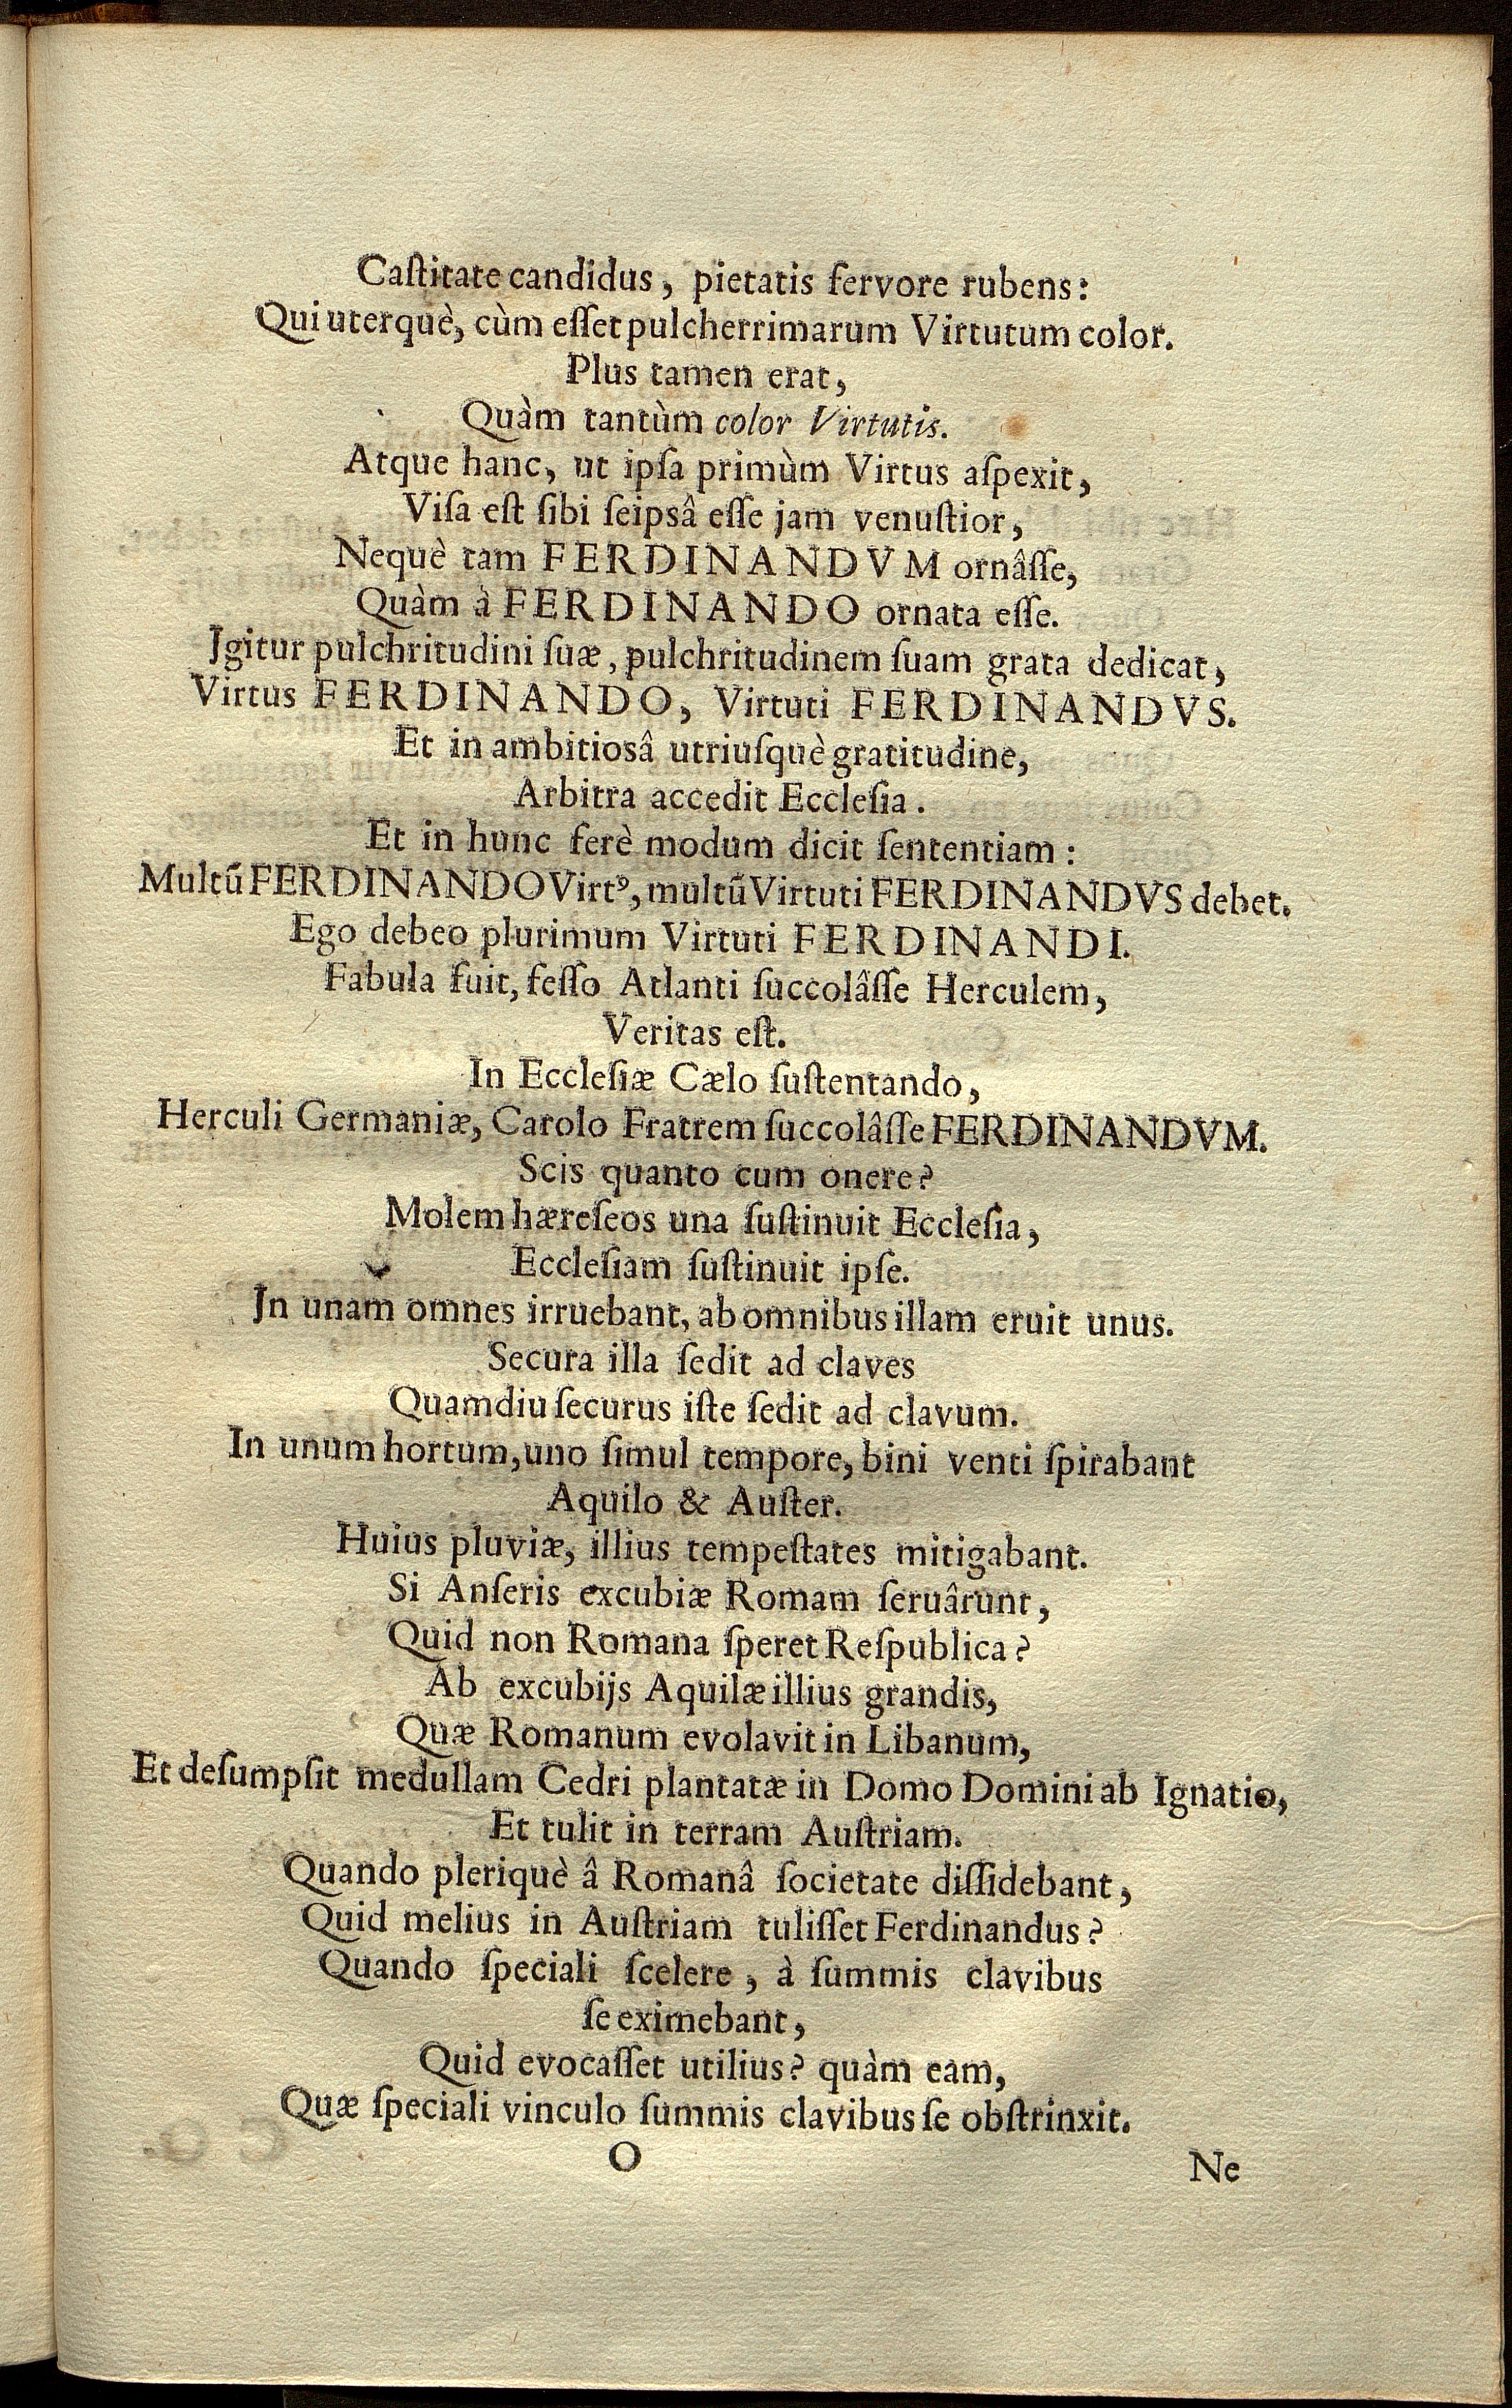 Caſtitate candidus, pietatis fervore rubens:
Qui uterquè, cùm eſſet pulcherrimarum Virtutum color.
Plus tamen erat,
Quàm tantùm color Virtutis.
Atque hanc, ut ipſa primùm Virtus aſpexit,
Viſa eſt ſibi ſeipsâ eſſe jam venuſtior,
Nequè tam FERDINANDVM ornâſſe,
Quàm à FERDINANDO ornata eſſe.
Igitur pulchritudini ſuæ, pulchritudinem ſuam grata dedicat,
Virtus FERDINANDO, Virtuti FERDINANDVS.
Et in ambitiosâ utriuſquè gratitudine,
Arbitra accedit Eccleſia.
Et in hunc ferè modum dicit ſententiam:
Multũ FERDINANDO Virtꝰ, multũ Virtuti FERDINANDVS debet.
Ego debeo plurimum Virtuti FERDINANDI.
Fabula fuit, feſſo Atlanti ſuccolâſſe Herculem,
Veritas eſt.
In Eccleſiæ Cælo ſuſtentando,
Herculi Germaniæ, Carolo Fratrem ſuccolâſſe FERDINANDVM.
Scis quanto cum onere?
Molem hæreſeos una ſuſtinuit Eccleſia,
Eccleſiam ſuſtinuit ipſe.
In unam omnes irruebant, ab omnibus illam eruit unus.
Secura illa ſedit ad claves
Quamdiu ſecurus iſte ſedit ad clavum.
In unum hortum, uno ſimul tempore, bini venti ſpirabant
Aquilo & Auſter.
Huius pluviæ, illius tempeſtates mitigabant.
Si Anſeris excubiæ Romam ſeruârunt,
Quid non Romana ſperet Reſpublica?
Ab excubijs Aquilæ illius grandis,
Quæ Romanum evolavit in Libanum,
Et deſumpſit medullam Cedri plantatæ in Domo Domini ab Ignatio,
Et tulit in terram Auſtriam.
Quando pleriquè â Romanâ ſocietate diſſidebant,
Quid melius in Auſtriam tuliſſet Ferdinandus?
Quando ſpeciali ſcelere, à ſummis clavibus
ſe eximebant,
Quid evocaſſet utilius? quàm eam,
Quæ ſpeciali vinculo ſummis clavibus ſe obſtrinxit.
O
Ne